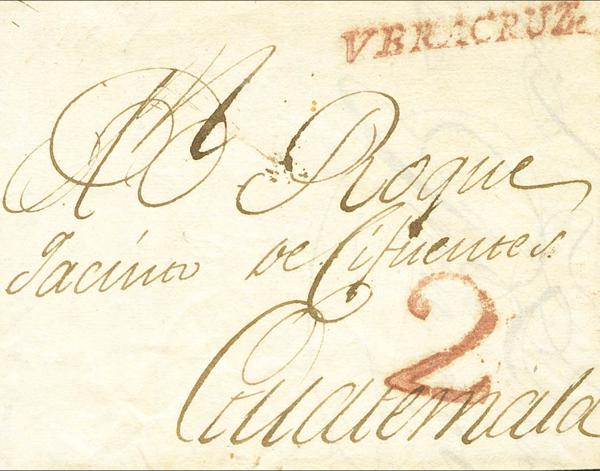 VERACRUZ
Roque
Jacinto de Cifuentes
Guatemala
2